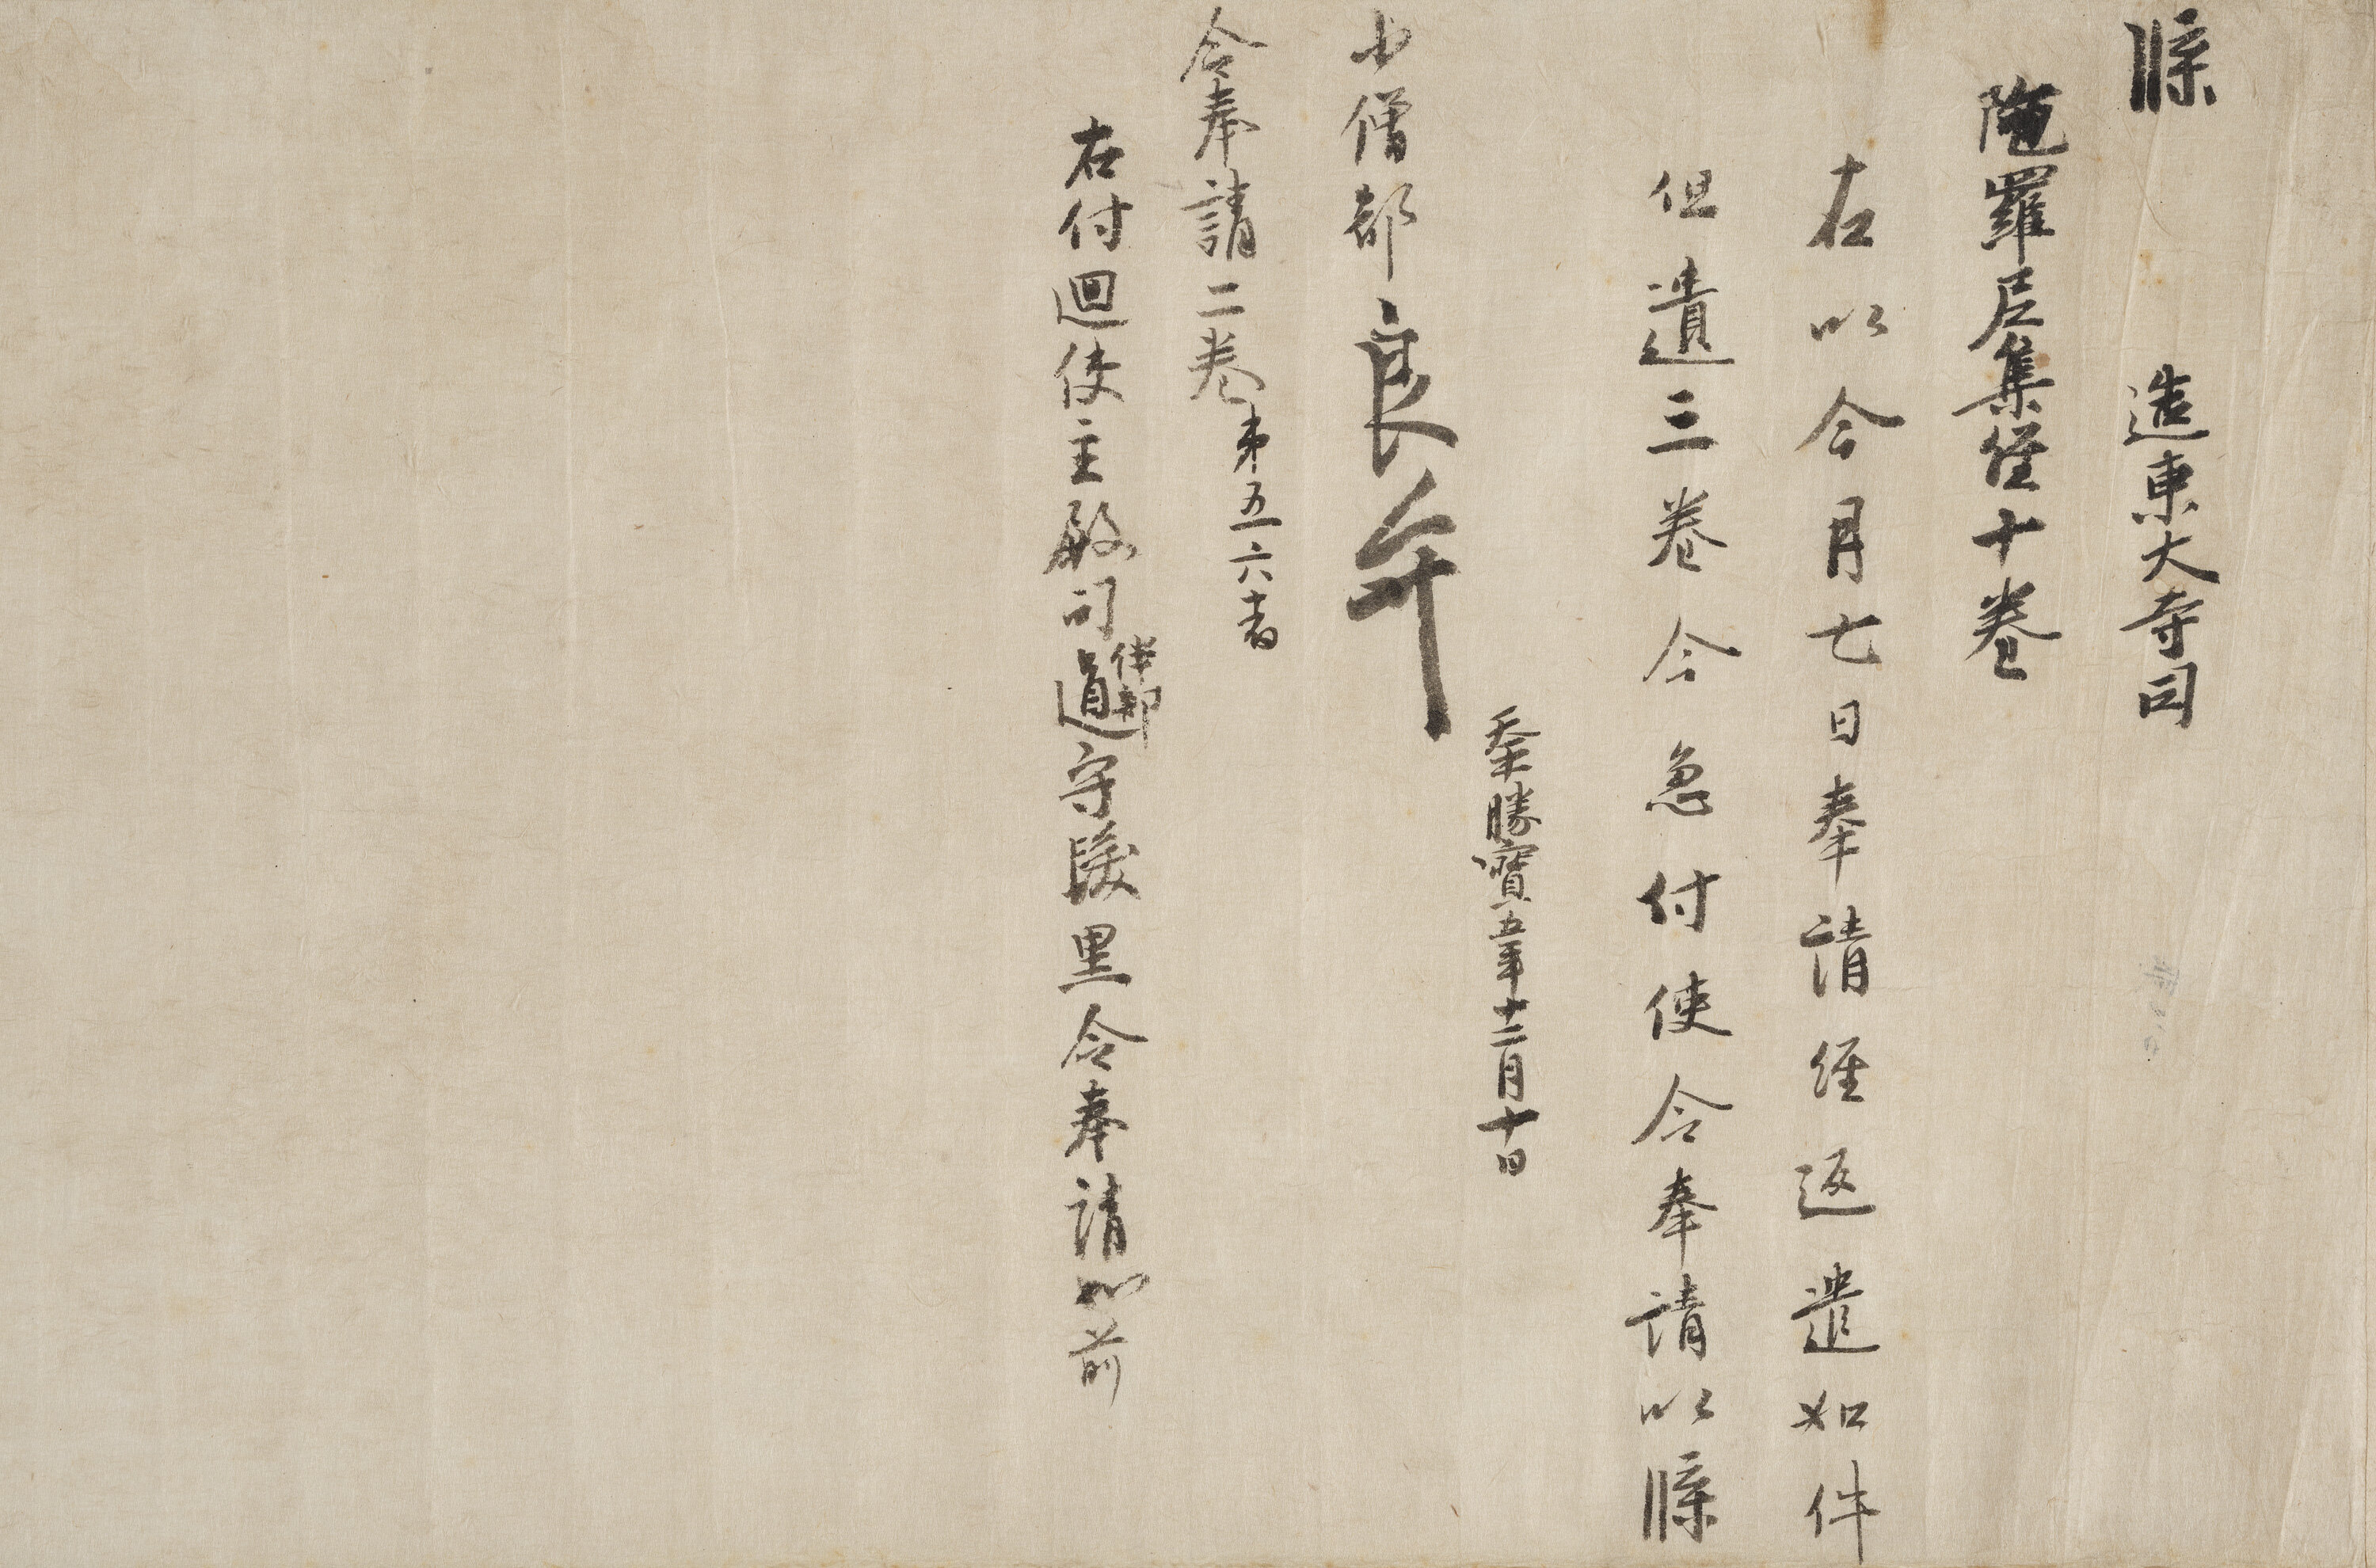 牒　造東大寺司
陁羅尼集経十巻
右以今月七日奉請経返遣如件
但遺三巻今急付使令奉請以牒
天平勝寳五年十二月十日
少僧都良弁
令奉請二巻第五六者
右付迴使主殿司使部道守里令奉請如前